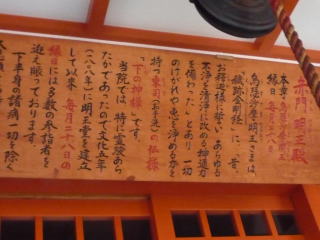 赤門 明王殿
本尊 烏蒭沙摩明王
縁日 毎月二十八日
烏蒭沙摩明王さまは、
「穢跡金剛経」に、昔、
お釈迦様に誓い あらゆる
不浄を清浄に改める神通力
を備わった」とあり 一切
のけがれや悪を浄める力を
持つ東司(お手洗)の仏様
「下の神様」です。
当院では、特に霊験あら
たかであったので文化五年
(一八〇八年)に明王堂を建立
して以来 毎月二十八日の
縁日には多数の参詣者を
迎え賑っております。
下半身の諸病一切を除く